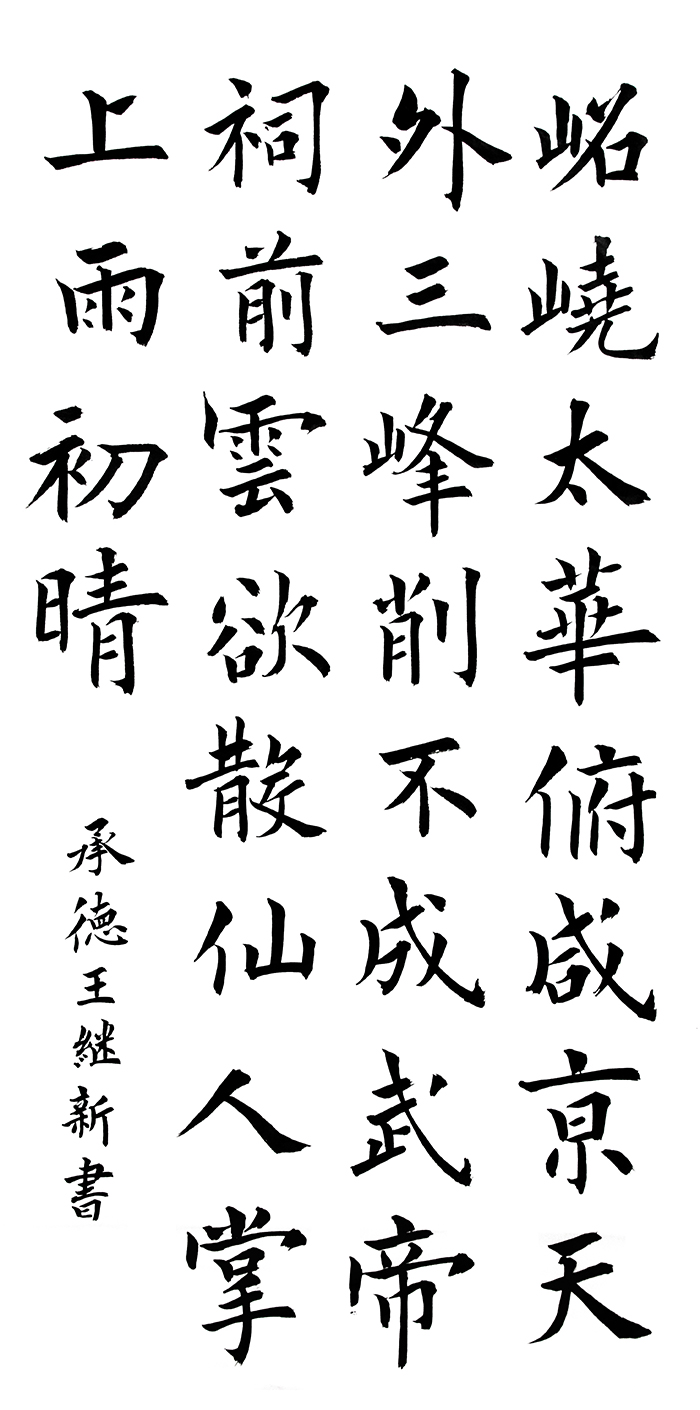 岧嶢太華俯咸京天
外三峰削不成武帝
祠前雲欲散仙人掌
上雨初晴
承德王継新書